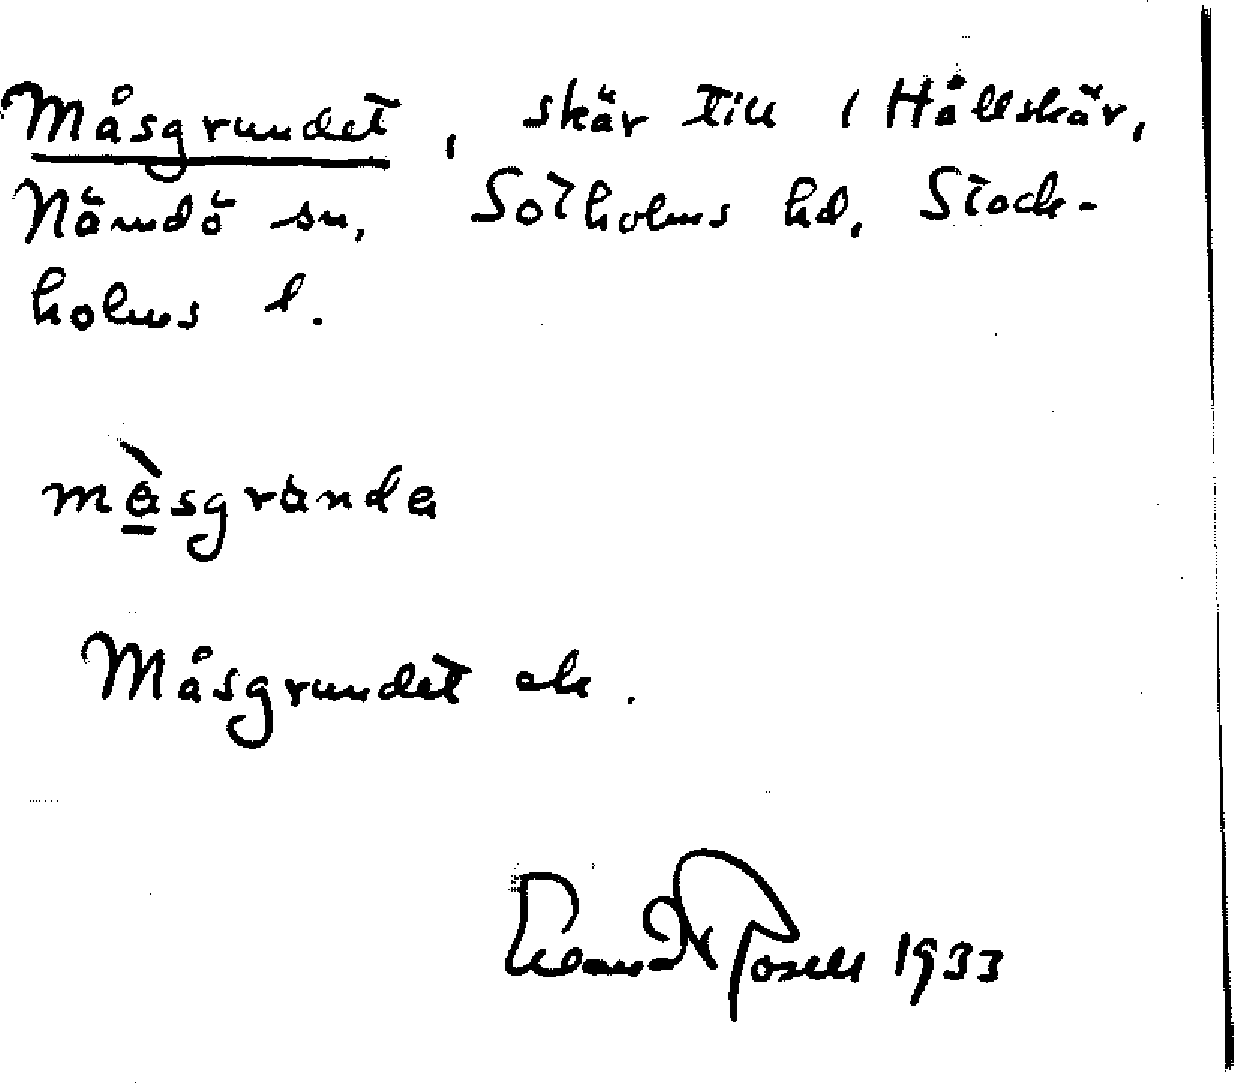 Måsgrundet, skär till 1 Hållskär,
Nämdö sn, Sotholms hd, Stock-
holms l.
måsgrunda
Måsgrundet ek.
1933